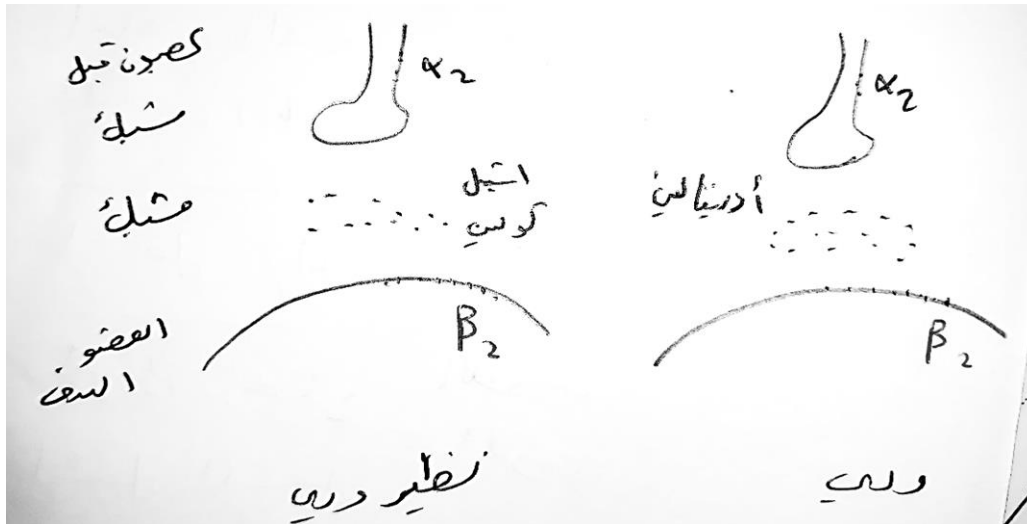 عصبون قبل
مشبك
α2
α2
مشبك
استيل
كولين
أدرينالين
العضو
الهدف
β2
β2
نظير ودي
ودي